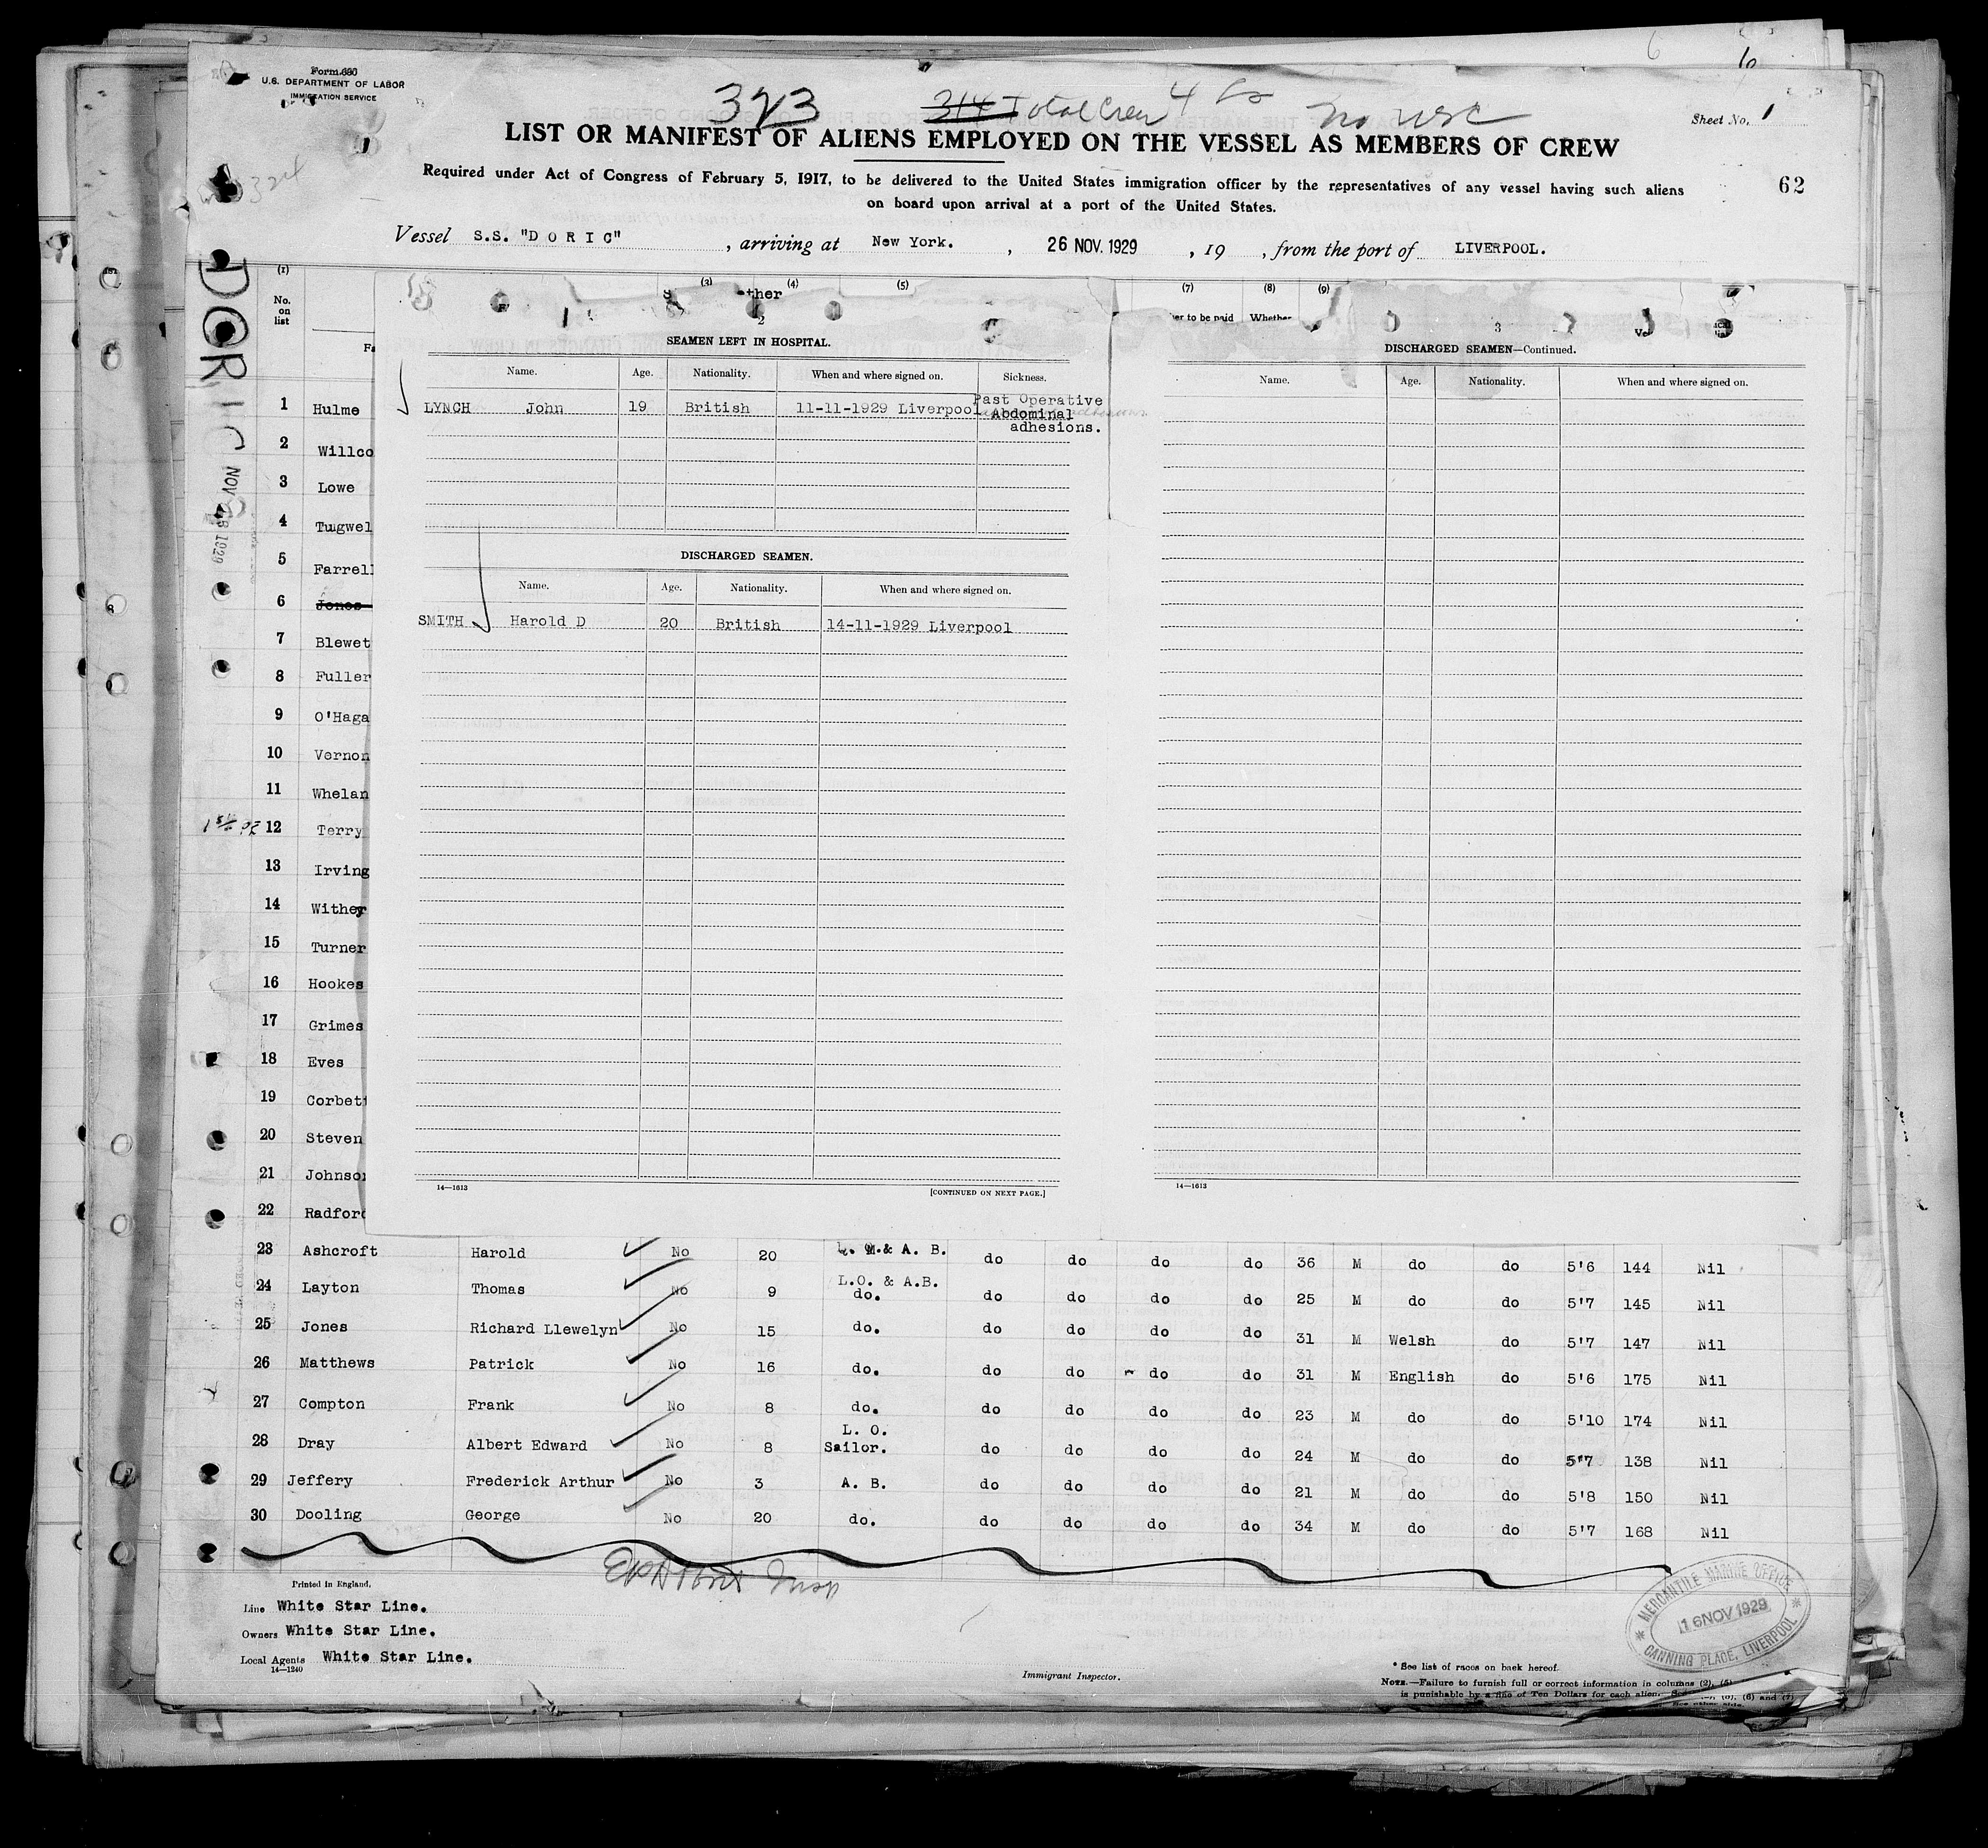 Form 680
U.S. DEPARTMENT OF LABOR
IMMIGRATION SERVICE
323 314 Total Crew 4
Sheet No. 1
LIST OR MANIFEST OF ALIENS EMPLOYED ON THE VESSEL AS MEMBERS OF CREW
Required under Act of Congress of February 5, 1917, to be delivered to the United States immigration officer by the representatives of any vessel having such aliens
on board upon arrival at a port of the United States.
62
Vessel S.S. "DORIC", arriving at New York., 26 NOV. 1929, 19 , from the port of LIVERPOOL.
DORIC
(1) (3) (4) (5) (7) (8) (9)
No. on list
2
SEAMEN LEFT IN HOSPITAL.
Name. Age. Nationality. When and where signed on. Sickness.
LYNCH John 19 British 11-11-1929 Liverpool Past Operative
Abdominal
adhesions.
DISCHARGED SEAMEN.
Name. Age. Nationality. When and where signed on.
SMITH Harold D 20 British 14-11-1929 Liverpool
14—1613 [CONTINUED ON NEXT PAGE.]
3
DISCHARGED SEAMEN—Continued.
Name. Age. Nationality. When and where signed on.
14—1613
1 Hulme
2 Willco
3 Lowe
4 Tugwel
5 Farrell
6 Jones
7 Blewet
8 Fuller
9 O'Haga
10 Vernon
11 Whelan
12 Terry
13 Irving
14 Wither
15 Turner
16 Hookes
17 Grimes
18 Eves
19 Corbett
20 Steven
21 Johnson
22 Radford
23 Ashcroft Harold No 20 L. M.& A. B. do do do do 36 M do do 5'6 144 Nil
24 Layton Thomas No 9 L.O. & A.B. do. do do do do 25 M do do 5'7 145 Nil
25 Jones Richard Llewelyn No 15 do. do do do do 31 M Welsh do 5'7 147 Nil
26 Matthews Patrick No 16 do. do do do do 31 M English do 5'6 175 Nil
27 Compton Frank No 8 do. do do do do 23 M do do 5'10 174 Nil
28 Dray Albert Edward No 8 L. O. Sailor. do do do do 24 M do do 5'7 138 Nil
29 Jeffery Frederick Arthur No 3 A. B. do do do do 21 M do do 5'8 150 Nil
30 Dooling George No 20 do. do do do do 34 M do do 5'7 168 Nil
Printed in England.
Line White Star Line.
Owners White Star Line.
Local Agents White Star Line.
14—1240
Immigrant Inspector.
MERCANTILE MARINE OFFICE
16 NOV 1929
CANNING PLACE, LIVERPOOL
* See list of races on back hereof.
NOTE.—Failure to furnish full or correct information in columns (2), (5)
is punishable by a fine of Ten Dollars for each alien. (6) and (7)